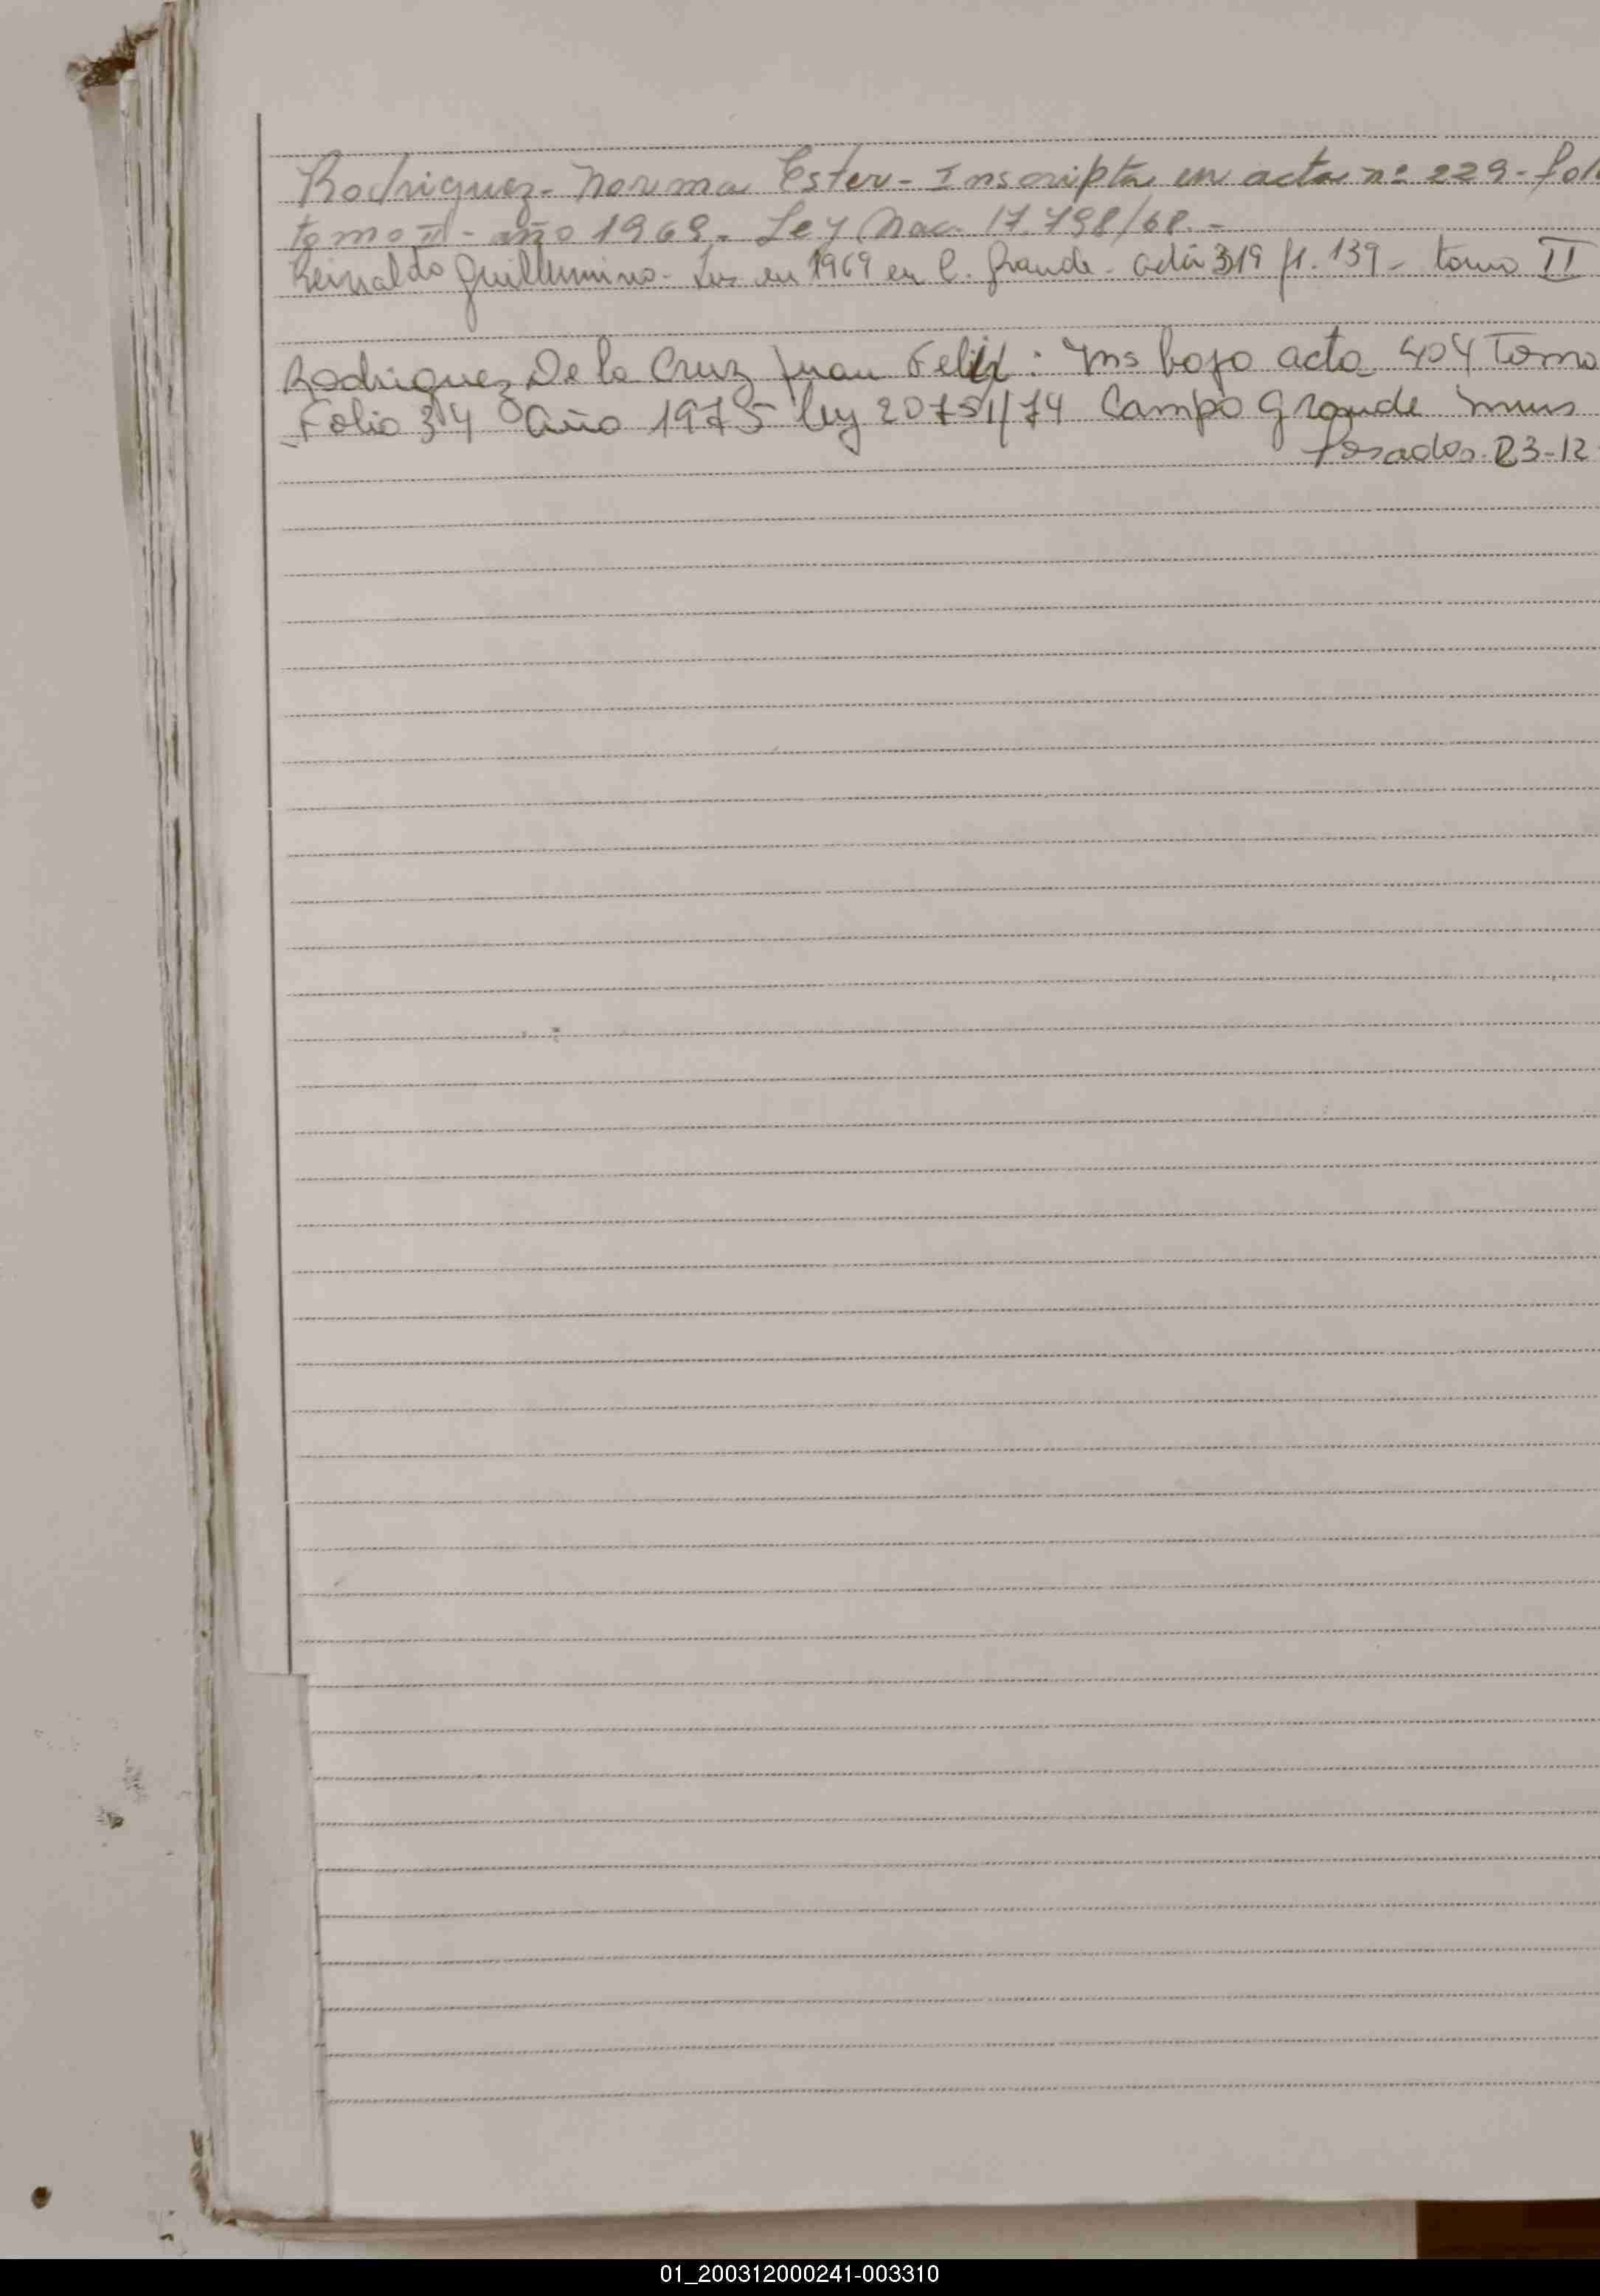 Rodriguez - Norma Ester - Inscripta en acta nº 229 - fol
tomo II - año 1969 - Ley Nac. 17.798/68. -
Reinaldo Guillermino - Ins en 1969 en C. Grande - acta 319 fl. 139 - tomo II
Rodriguez De la Cruz Juan Felix : Ins bajo acta 404 Tomo
Folio 34 Año 1975 ley 20751/74 Campo Grande
Posadas 23-12
01_200312000241-003310